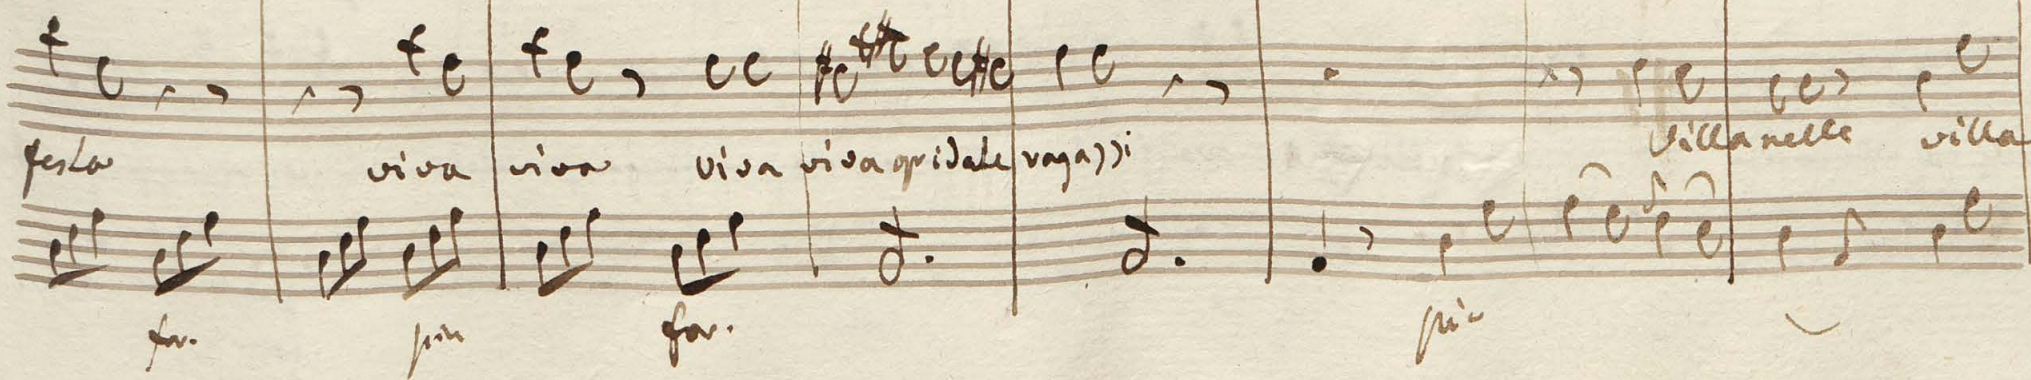 festa viva viva viva viva gridate ragazzi Villanelle villa
for. pia for. pia